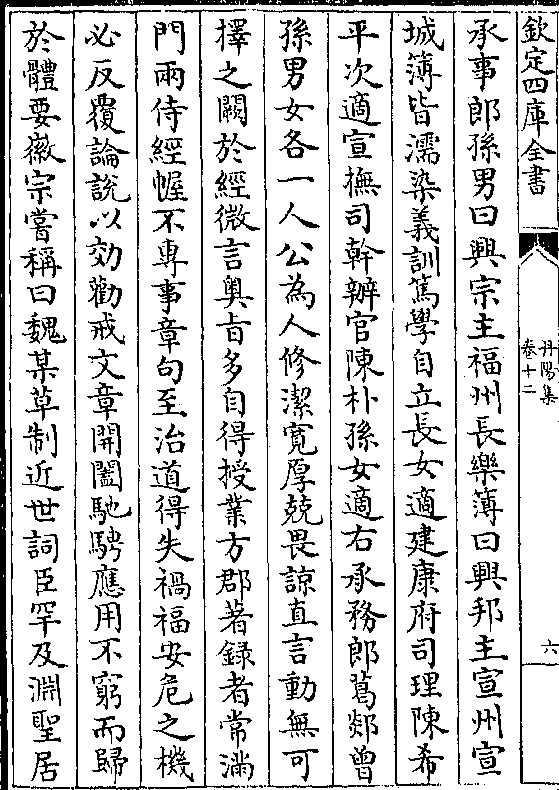 欽定四庫全書
丹陽集
卷十二
六
承事郎孫男曰興宗主福州長樂簿曰興邦主宣州宣
城簿皆濡染義訓篤學自立長女適建康府司理陳希
平次適宣撫司幹辦官陳朴孫女適右承務郎葛郯曾
孫男女各一人公為人修潔寛厚兢畏諒直言動無可
擇之闕於經微言奥㫖多自得授業方郡著録者常滿
門兩侍經幄不專事章句至治道得失禍福安危之機
必反覆論說以効勸戒文章開闔馳騁應用不窮而歸
於體要徽宗嘗稱曰魏某草制近世詞臣罕及淵聖居